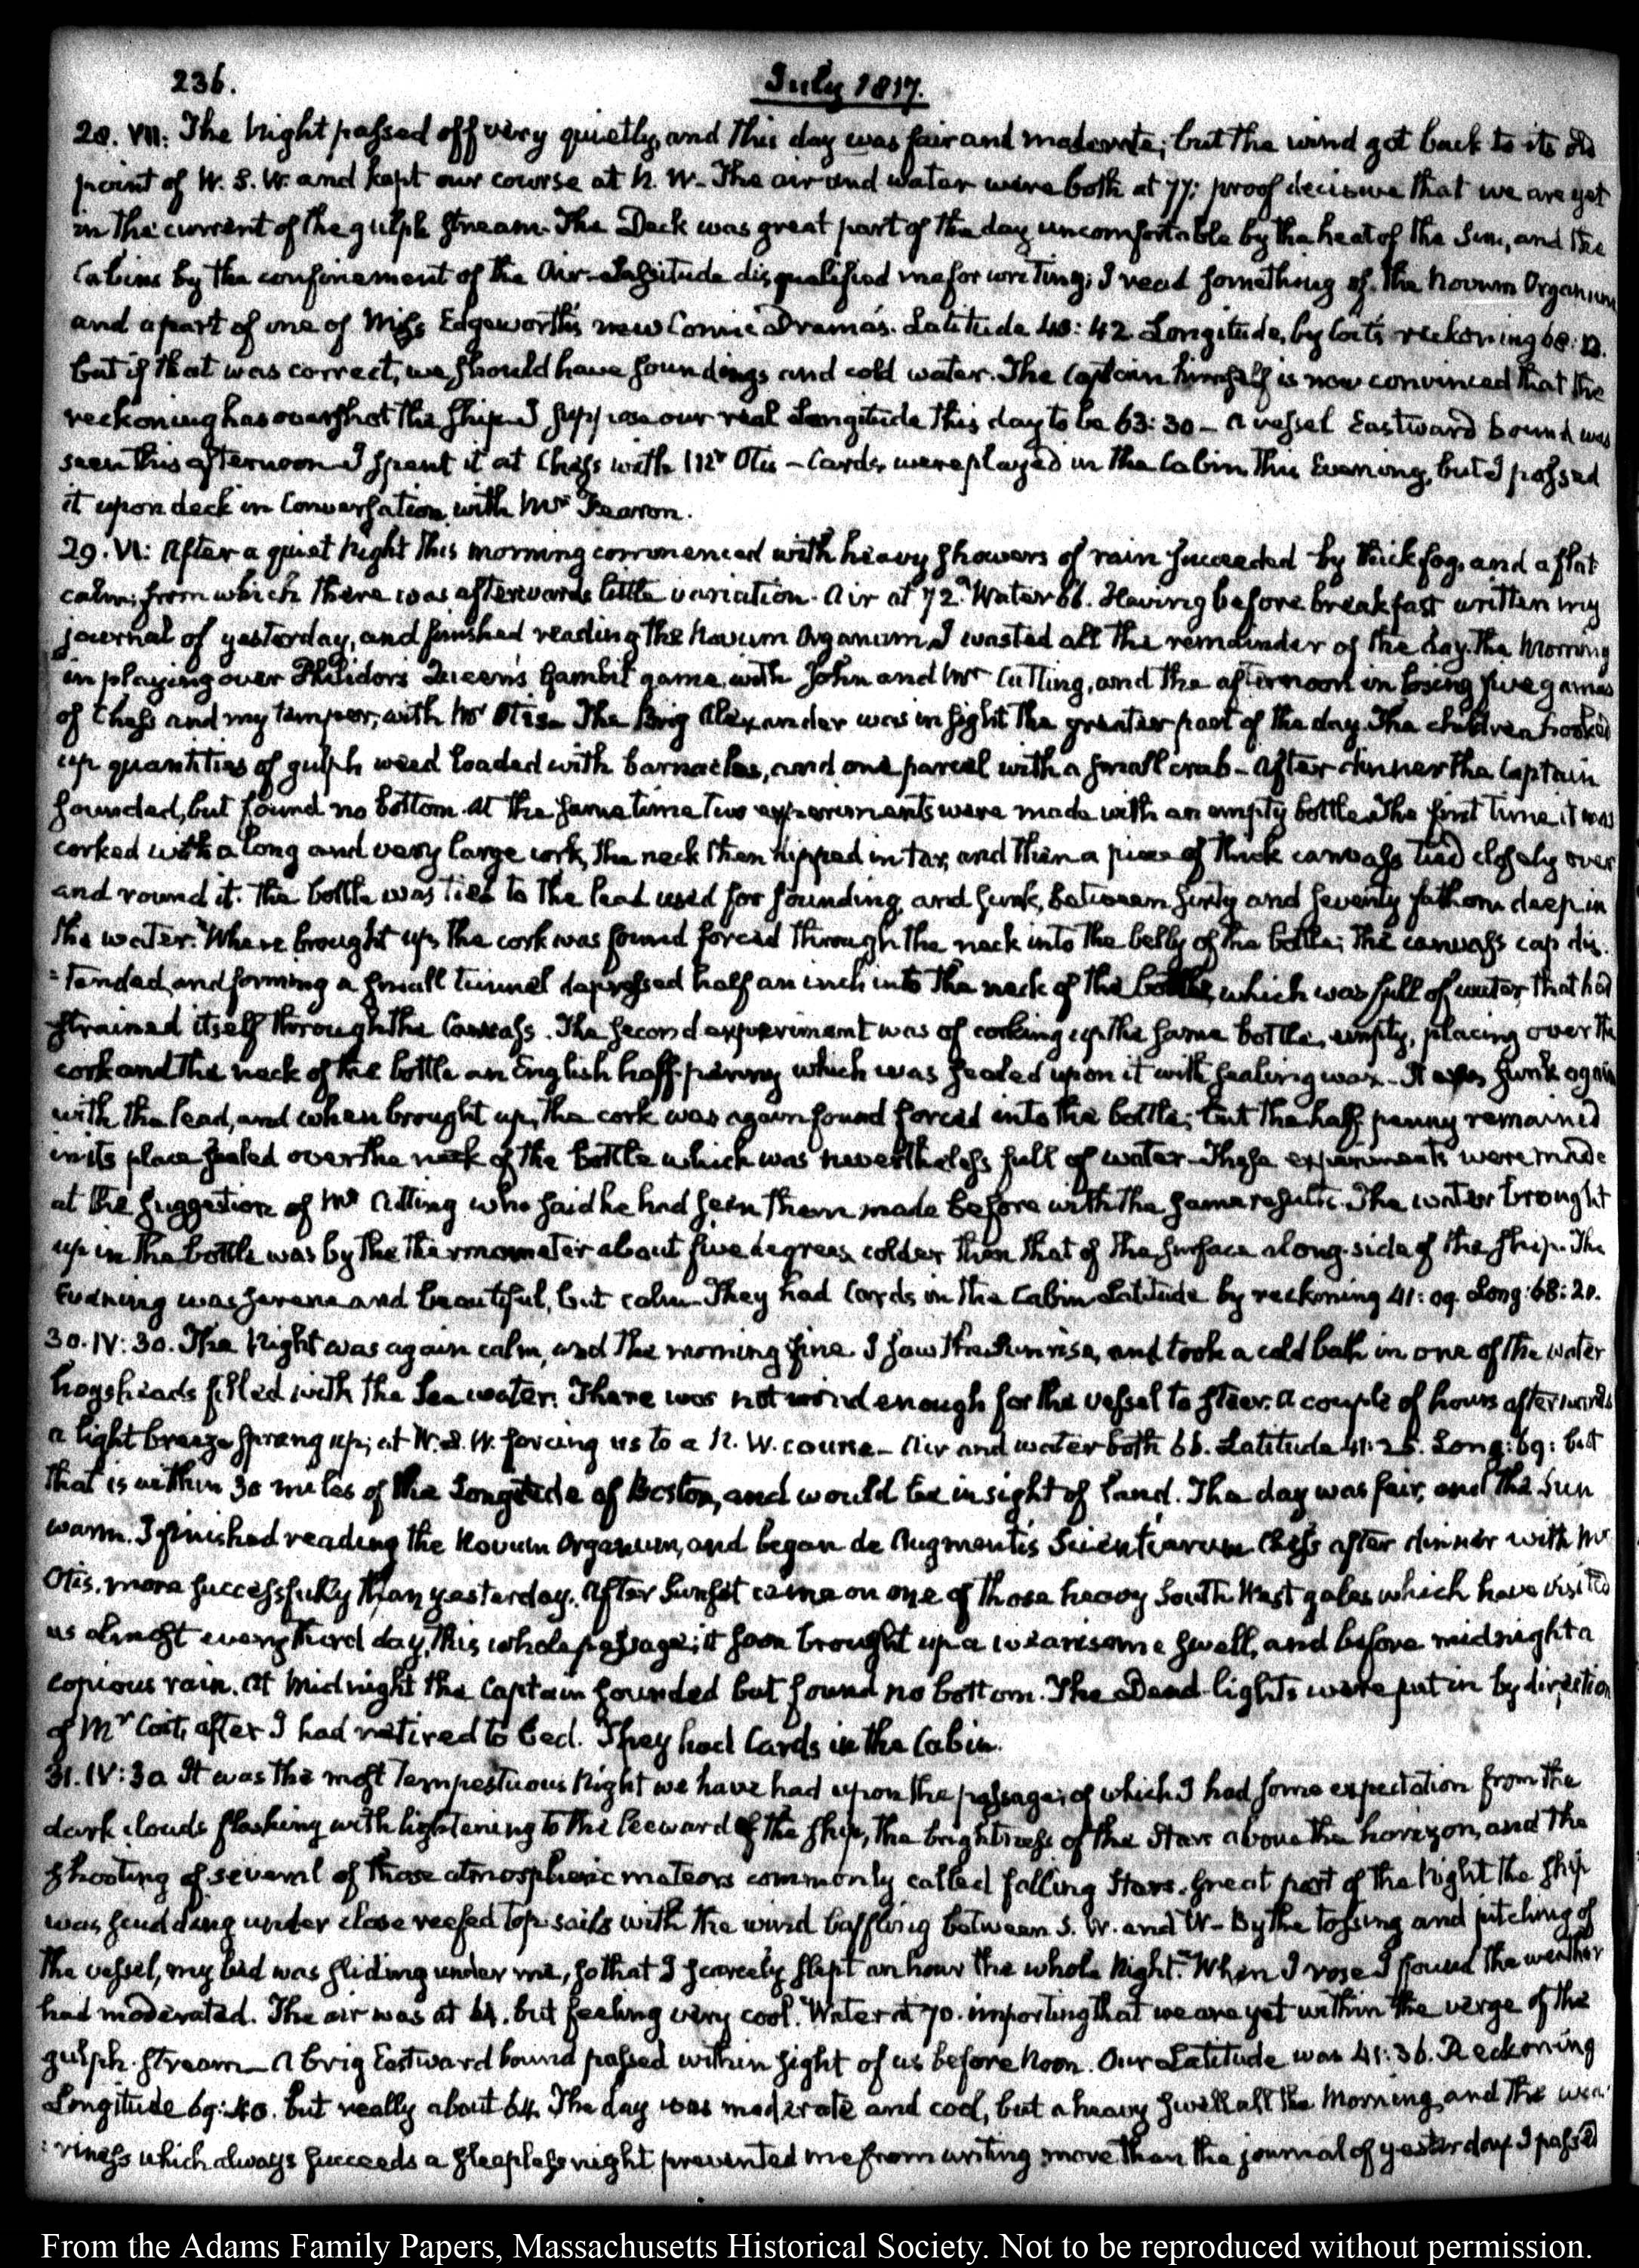 236.
July 1817.
28. VII: The Night passed off very quietly, and this day was fair and moderate; but the wind got back to its old
point of W. S. W. and kept our course at N. W. The air and water were both at 77: proof decisive that we are yet
in the current of the gulph stream. The Deck was great part of the day uncomfortable by the heat of the Sun, and the
Cabins by the confinement of the Air. Lassitude disqualified me for writing; I read something of the Novum Organum
and a part of one of Miss Edgeworth's new Comic Dramas. Latitude 40: 42. Longitude, by Coit's reckoning 68:
but if that was correct, we should have soundings and cold water. The Captain himself is now convinced that the
reckoning has overshot the ship. I suppose our real Longitude this day to be 63: 30 — A vessel Eastward bound was
seen this afternoon. I spent it at Chess with Mr Otis — Cards were played in the Cabin this Evening, but I passed
it upon deck in Conversation with Mr Fearon.
29. VI: After a quiet Night this morning commenced with heavy showers of rain succeeded by thick fog, and a flat
calm; from which there was afterwards little variation. Air at 72. Water 66. Having before breakfast written my
journal of yesterday, and finished reading the Novum Organum, I wasted all the remainder of the day. The Morning
in playing over Philidor's Queen's Gambit game, with John and Mr Cutting, and the afternoon in losing five games
of Chess and my temper, with Mr Otis. The Brig Alexander was in sight the greater part of the day. The children hooked
up quantities of gulph weed loaded with barnacles, and one parcel with a small crab — After dinner the Captain
sounded, but found no bottom. At the same time two experiments were made with an empty bottle. The first time it was
corked with a long and very large cork, the neck then dipped in tar, and then a piece of thick canvass tied closely over
and round it. The bottle was tied to the lead used for sounding, and sunk, between sixty and seventy fathom deep in
the water. When brought up, the cork was found forced through the neck into the belly of the bottle; the canvass cap dis
=tended, and forming a small tunnel depressed half an inch into the neck of the bottle, which was full of water, that had
strained itself through the Canvass. The second experiment was of corking up the same bottle, empty, placing over the
cork and the neck of the bottle an English half-penny which was sealed upon it with sealing wax. It was sunk again
with the lead, and when brought up, the cork was again found forced into the bottle; but the half penny remained
in its place sealed over the neck of the bottle which was nevertheless full of water. These experiments were made
at the suggestion of Mr Cutting who said he had seen them made before with the same results. The water brought
up in the bottle was by the thermometer about five degrees colder than that of the surface along-side of the ship. The
Evening was serene and beautiful, but calm. They had Cards in the Cabin. Latitude by reckoning 41: 09. Long: 68: 20.
30. IV: 30. The Night was again calm, and the morning fine. I saw the Sun rise, and took a cold bath in one of the water
hogsheads filled with the Sea water. There was not wind enough for the vessel to steer. A couple of hours afterwards
a light breeze sprang up, at W. S. W. forcing us to a N. W. course — Air and water both 66. Latitude 41: 25. Long: 69: but
that is within 30 miles of the Longitude of Boston, and would be in sight of land. The day was fair, and the Sun
warm. I finished reading the Novum Organum, and began de Augmentis Scientiarum. Chess after dinner with Mr
Otis. more successfully than yesterday. After Sunset came on one of those heavy South West gales which have visited
us almost every third day, this whole passage; it soon brought up a wearisome swell, and before midnight a
copious rain. At Midnight the Captain sounded but found no bottom. The Dead-lights were put in by direction
of Mr Coit, after I had retired to bed. They had Cards in the Cabin.
31. IV: 30. It was the most Tempestuous Night we have had upon the passage; of which I had some expectation from the
dark clouds flashing with lightening to the leeward of the ship, the brightness of the Stars above the horizon, and the
shooting of several of those atmospheric meteors commonly called falling Stars. Great part of the Night the ship
was scudding under close reefed top-sails with the wind baffling between S. W. and W — By the tossing and pitching of
the vessel, my bed was sliding under me, so that I scarcely slept an hour the whole Night. When I rose I found the weather
had moderated. The air was at 64. but feeling very cool. Water at 70. importing that we are yet within the verge of the
gulph-stream — A brig Eastward bound passed within sight of us before Noon. Our Latitude was 41: 36. Reckoning
Longitude 69: 40. but really about 64. The day was moderate and cool, but a heavy swell all the Morning, and the wea
=riness which always succeeds a sleepless night prevented me from writing more than the journal of yesterday. I passed
From the Adams Family Papers, Massachusetts Historical Society. Not to be reproduced without permission.